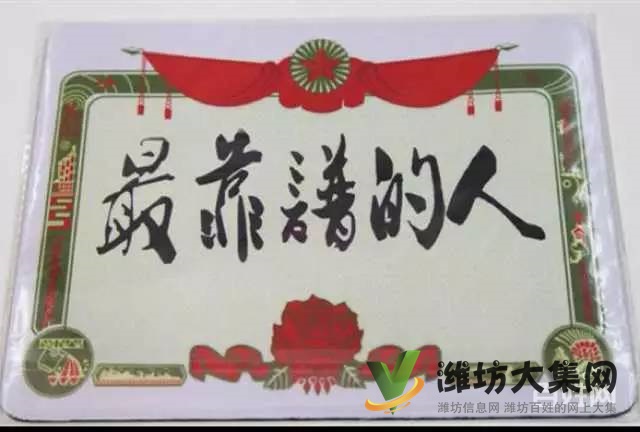 最靠譜的人
潍坊大集网
潍坊信息网 潍坊百姓的网上大集